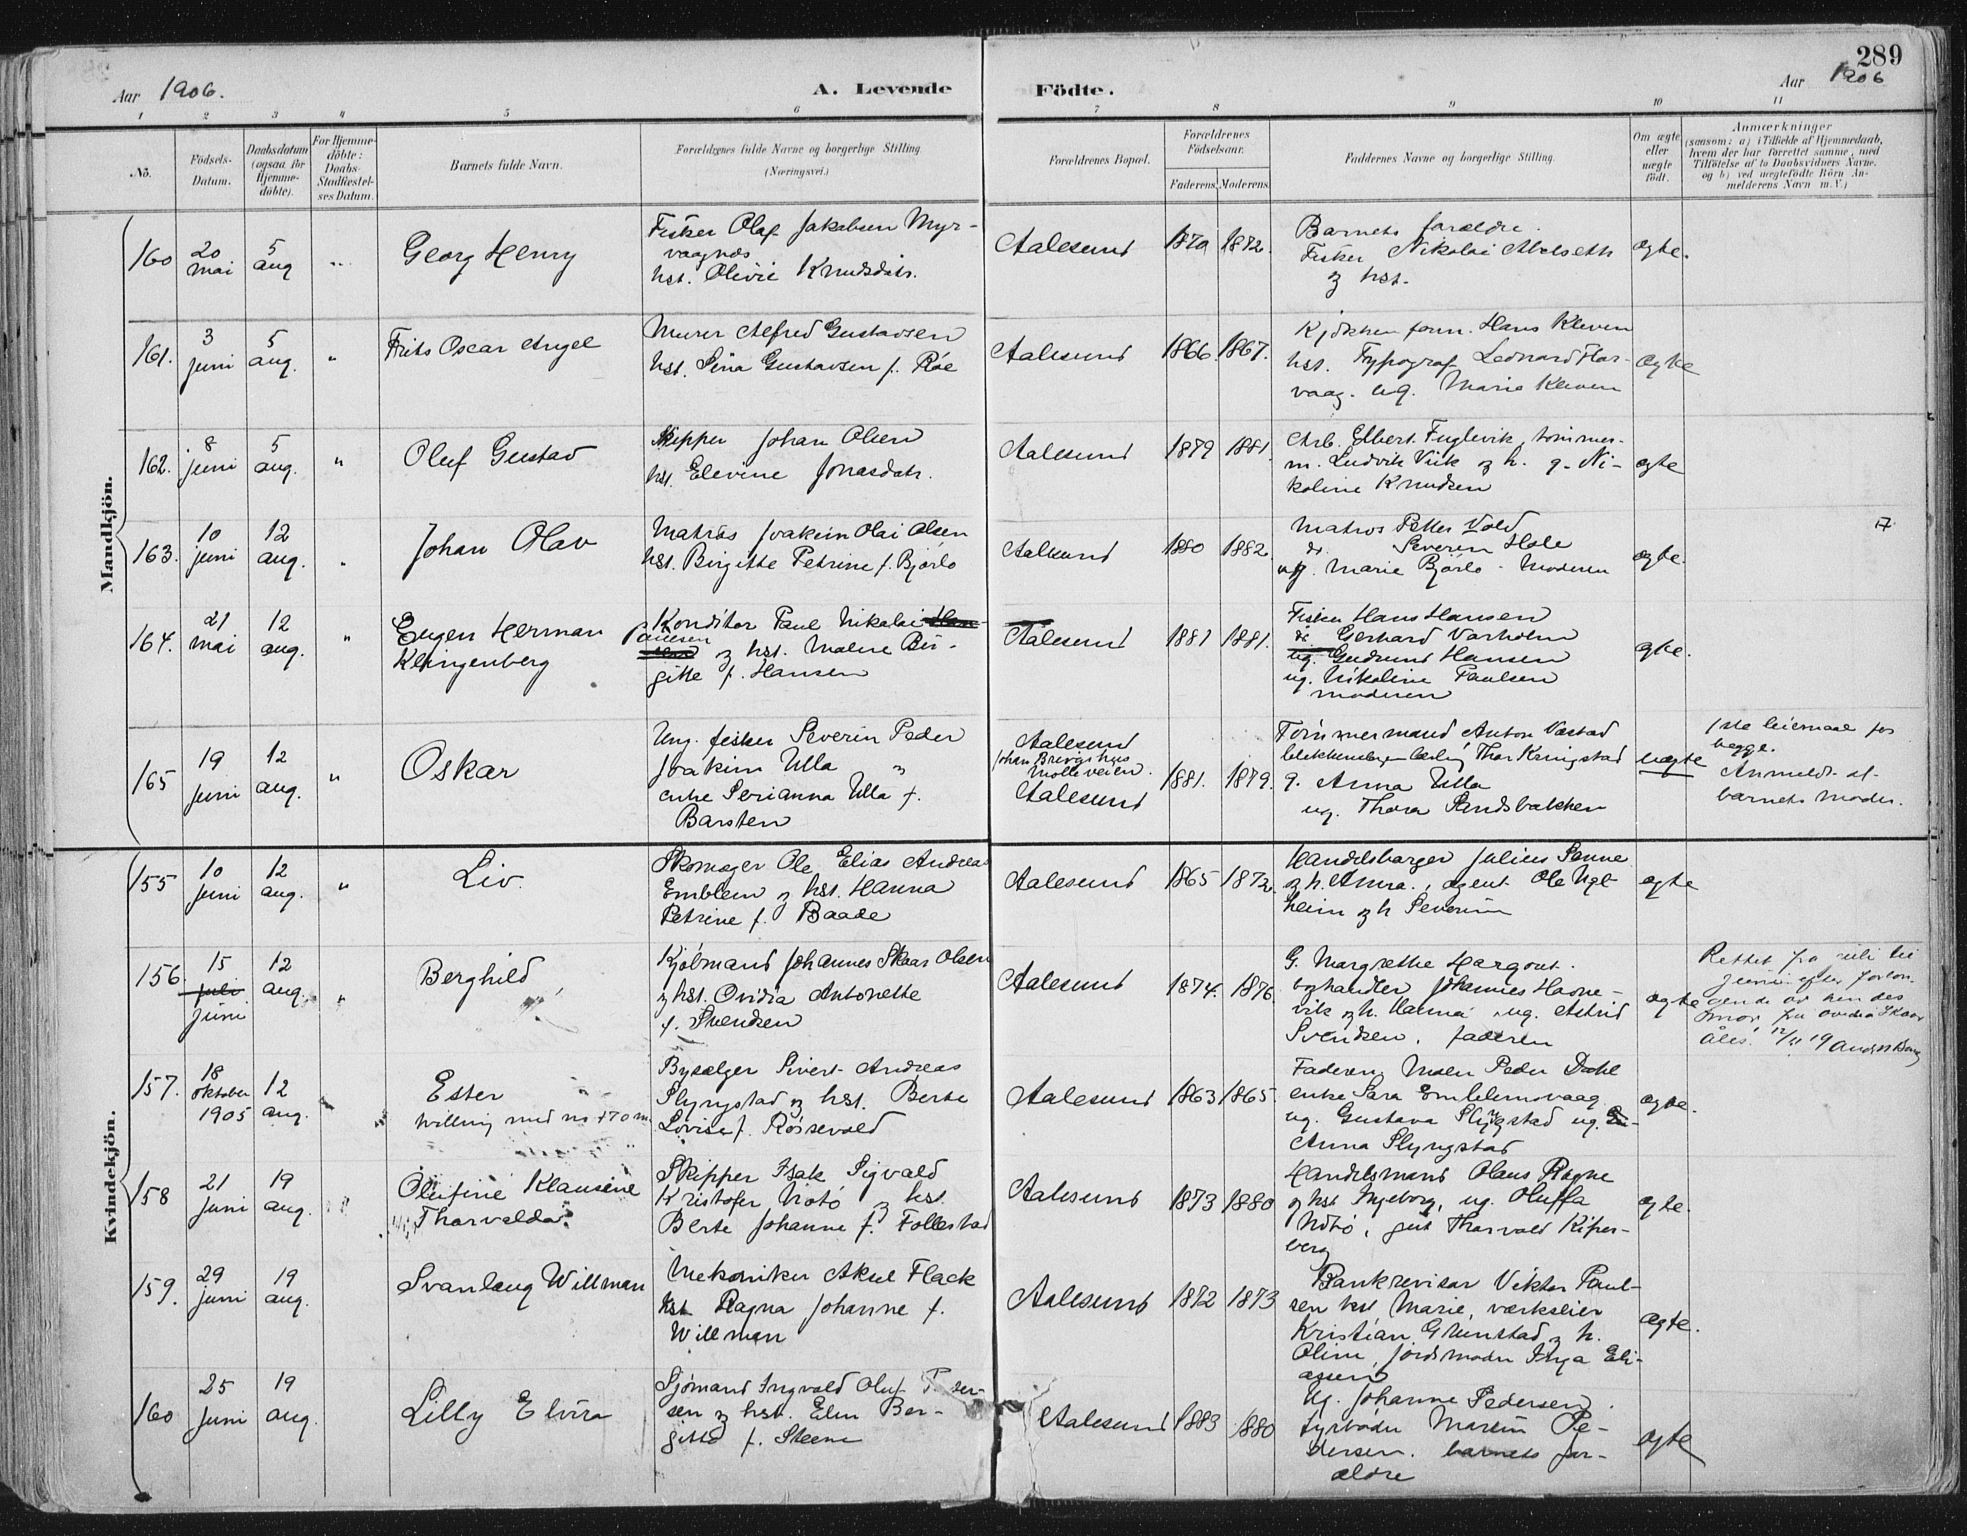 289
Aar 1906.
A. Levende
Födte.
Aar 1906
1 2 3 4 5 6 7 8 9 10 11
No.
Födsels-
Datum.
Daabsdatum
(ogsaa for
Hjemme-
döbte).
For Hjemme-
döbte:
Daabs-
Stadfæstel-
ses Datum.
Barnets fulde Navn.
Forældrenes fulde Navne og borgerlige Stilling.
(Næringsvei.)
Forældrenes Bopæl.
Forældrenes
Födselsaar.
Faderens. Moderens.
Faddernes Navne og borgerlige Stilling.
Om ægte
eller
uægte
födt.
Anmærkninger
(saasom: a) i Tilfælde af Hjemmedaab,
hvem der har forrettet samme, med
Tilföielse af to Daabsvidners Navne,
og b) ved uægtefödte Börn An-
melderens Navn m. V.)
Mandkjön.
160
20
mai
5
aug
"
Georg Henry
Fisker Olaf Jakobsen Myr-
vaagnes
hst. Olivie Knudsdatr.
Aalesund
1870 1872.
Barnets forældre.
Fisker Nikolai Abelseth
og hst.
ægte.
161.
3
juni
5
aug.
"
Frits Oscar Angel
Murer Alfred Gustavsen
hst. Sina Gustavsen f. Röe
Aalesund
1866. 1867.
Kjökken form. Hans Kleven
hst. Typograf Leonard Flor-
vaag. ug. Marie Kleven
ægte
162.
8
juni
5
aug.
"
Oluf Gustav
Skipper Johan Olsen
hst. Elevine Jonasdatr.
Aalesund
1879 1881.
Arb. Elbert Fuglevik, tömmer-
m. Ludvik Viik og h. g. Ni-
koline Knudsen
ægte
163.
10
juni
12
aug.
"
Johan Olav
Matros Joakim Olai Olsen
hst. Birgitte Petrine f. Björlo
Aalesund
1880 1882.
Matros Petter Vold
do. Severin Hole
ug. Marie Björlo - Moderen
ægte.
164.
21
mai
12
aug.
"
Eugen Herman
Klingenberg
Konditor Paul Nikolai
Paulsen
og hst. Malene Bir-
gitte f. Hansen
Aalesund
1881 1881.
Fisker Hans Hansen
do Gerhard Varholm
ug. Gudrund Hansen
ug. Nikoline Paulsen
moderen
ægte.
165
19
juni
12
aug.
"
Oskar
Ung. fisker Severin Peder
Joakim Ulla og
enke Serianna Ulla f.
Barsten
Aalesund
Johan Brungs hus
Molleveien.
Aalesund
1881. 1879.
Tömmermand Anton Vestad
blikkenslagerlærling Thor Kringstad
g. Anna Ulla
ug. Thora Sandsbakken
uægte
1ste leiermaal for
begge.
Anmeldt af
barnets moder.
Kvindekjön.
155
10
juni
12
aug.
"
Liv.
Skomager Ole Elias Andreas
Emblem og hst. Hanna
Petrine f. Baade
Aalesund
1865 1872.
Handelsborger Julius Sanne
og h. Anna, agent Ole Ugl-
heim og h Severine
ægte
156
15
juli
juni
12
aug.
"
Berghild
Kjöbmand Johannes Skaar Olsen
og hst. Ovidia Antonette
f. Svendsen
Aalesund
1874. 1876.
G. Margrethe Margout.
boghandler Johannes Havne-
vik og h. Hanna ug. Astrid
Svendsen, faderen
ægte
Rettet fra juli til
juni efter forlan-
gende av hendes
mor fru Ovidia Skaar
Åles. 12/11 19
157.
18
oktober
1905
12
aug.
"
Ester
tvilling med no 170 m.
Bysælger Sivert Andreas
Slyngstad og hst. Berte
Lovise f. Röisevold
Aalesund
1863 1865.
Faderen, Maler Peder Dahl
enke Sara Emblemsvaag
ug. Gustava Slyngstad ug.
Anna Slyngstad
ægte.
158
21
juni
19
aug.
Olufine Klausine
Thorvalda
Skipper Isak Sigvald
Kristofer Notö og hst.
Berte Johanne f. Follestad
Aalesund
1873 1880
Handelsmand Olaus Rogne
og hst Ingeborg, ug. Oluffa
Notö, gut Thorvald Kiper-
berg
ægte.
159.
29
juni
19
aug.
Svanlaug Willman
Mekaniker Aksel Flack
hst. Ragna Johanne f.
Willman
Aalesund
1872 1873
Bankrevisor Viktor Paul-
sen hst Marie, værkseier
Kristian Grimstad og h.
Oline, jordmoder Inga Eli-
assen
ægte.
160
25
juni
19
aug.
Lilly Elvira
Sjömand Ingvald Oluf
sen og hst. Elen Ber-
gitte f. Steene
Aalesund
1883 1880
Ug. Johanne Pedersen.
fyrböder Martin Pe-
dersen. barnets for-
ældre
ægte